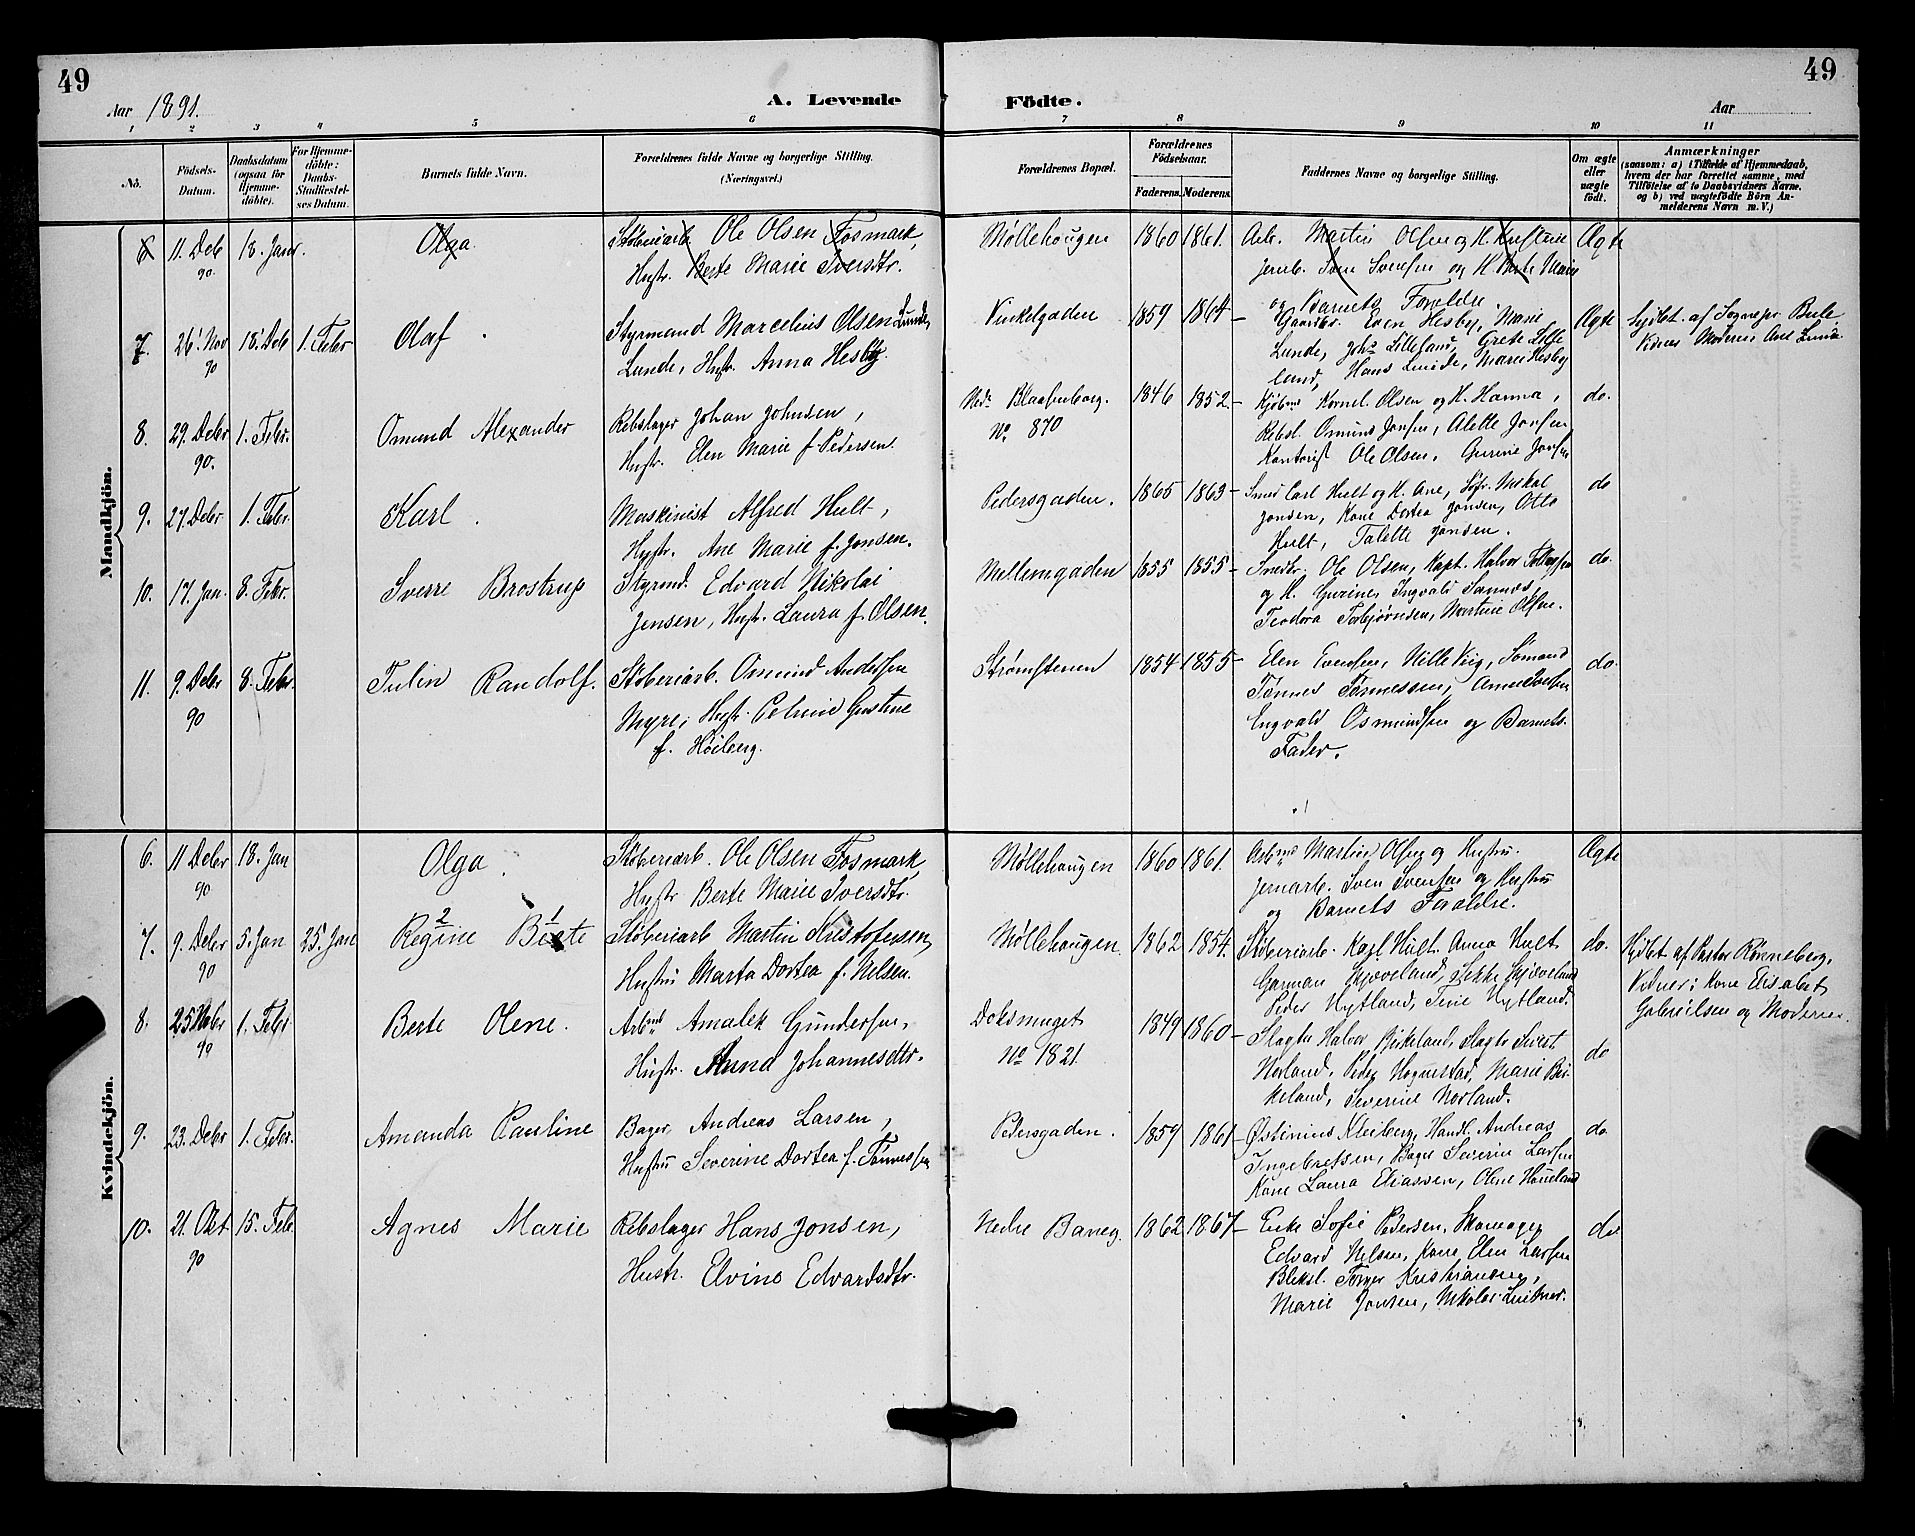 49
49
Aar 1891.
A. Levende
Födte.
Aar
1 2 3 4 5 6 7 8 9 10 11
No.
Födsels-
Datum.
Daabsdatum
(ogsaa for
Hjemme-
döbte).
For Hjemme-
döbte:
Daabs-
Stadfæstel-
ses Datum.
Barnets fulde Navn.
Forældrenes fulde Navne og borgerlige Stilling.
(Næringsvei.)
Forældrenes Bopæl.
Forældrenes
Födselsaar.
Faderens. Moderens.
Faddernes Navne og borgerlige Stilling.
Om ægte
eller
uægte
födt.
Anmærkninger
(saasom: a) i Tilfælde af Hjemmedaab,
hvem der har forrettet samme, med
Tilföielse af to Daabsvidners Navne,
og b) ved uægtefödte Börn An-
melderens Navn m. V.)
Mandkjön.
6 11. Deb 90 18. Janr. Olga
Stöberiarb. Ole Olsen Fosmark,
Hustr. Berte Marie Iversdtr.
Møllehaugen 1860 1861.
Arb. Martin Olsen og H.
Jernb. Sven Svensen og H. Berte Marie
og Barnets Foreldre.
Ægte
7. 26. Nov 90 18. Deb 1. Febr Olaf
Styrmand Marcelius Olsen Lunde,
Lunde, Hustr. Anna Hesby
Vinkelgaden 1859 1864
Gaardbr. Even Hesby, Marie
Lunde, Johs Lilleland, Grete Lille
land, Hans Lunde, Marie Hesby
Ægte
Hjdbt. af Sognepr. Bule
Vidner Moderen Ane Lunde
8. 29. Debr 90. 1. Febr. Omund Alexander
Rebslager Johan Johnsen,
Hustr. Elen Marie f. Pedersen.
Ned. Blaasenborg.
No. 870
1846 1852
Kjøbmd Kornel. Olsen og H. Hanna,
Rebsl. Omund Jonsen, Alette Jonsen
Kontorist Ole Olsen, Gurine Jonsen
do.
9. 27. Debr 1. Febr. Karl.
Maskinist Alfred Hult,
Hustr. Ane Marie f. Jonsen.
Pedersgaden. 1865 1863
Smed Carl Hult og H. Ane, Søfr. Mikal
Jonsen, Kone Dortea Jonsen, Otto
Hult, Talette Jonsen.
do
10. 17. Jan. 8. Febr. Sverre Brostrup
Styrmd. Edvard Nikolai
Jensen, Hustr. Laura f. Olsen.
Mellemgaden 1855 1855
Snedkr. Ole Olsen, Kapt. Halvor
og H. Gurine, Ingvald Samnes,
Teodora Torbjørnsen, Martine Olsen.
do.
11. 9. Debr 90 8. Febr. Tulin Randolf.
Stöberiarb. Omund Andersen
Myre, Hustr. Pelmine Gustine
f. Höiberg.
Strømstenen 1854 1855
Elen Evensen, Nille Viig, Sömand
Tönnes Tönnessen, Anne Iversen
Engvald Osmundsen og Barnets
Fader.
do.
Kvindekjön.
6. 11 Debr 90 18. Jan Olga.
Stöberiarb. Ole Olsen Fosmark,
Hustr Berte Marie Iversdtr.
Møllehaugen 1860 1861.
Arbmd Martin Olsen og Hustru.
Jernarb. Sven Svensen og Hustru
og Barnets Foreldre.
Ægte
7. 9. Debr 90 5. Jan 25. Jan
2 1
Regine Berte
Stöberiarb Martin Kristofersen,
Hustru Marta Dortea f. Nelsen.
Møllehaugen 1862 1854.
Stöberiarb. Karl Hult. Anna Hult
Garman Gjøveland, Sekke Gjöveland
Peder Nytland, Tine Nytland.
do.
Hjdbt af Pastor Rönneberg,
Vidner: Kone Elisabet
Gabrielsen og Moderen.
8. 25 90 1. Febr Berte Olene.
Arbmd Amalek Gundersen,
Hustr. Anna Johannesdtr.
Doksmuget
No 1821.
1849 1860
Slagter Halvor Birkeland, Slagter Sivert
Norland, Peder Hognestad, Marie Bir-
keland, Severine Norland.
do
9. 23. Debr 1. Febr. Amanda Pauline
Bager Andreas Larsen,
Hustru Severine Dortea f. Tönnessen
Pedersgaden. 1859 1861
Østinius Kleiberg, Handl. Andreas
Ingebretsen, Bager Severin Larsen
Kone Laura Eliassen, Olene Haueland
do
10. 21. Okt 90 15. Feb. Agnes Marie
Rebslager Hans Jonsen,
Hustr. Elvine Edvardsdtr.
Nedre Baneg. 1862 1867
Enke Sofie Pedersen, Skomager
Edvard Nelsen, Kone Elen Larsen
Bliksl. Torger Kristiansen,
Marie Jonsen, Nikolai Lintner.
do